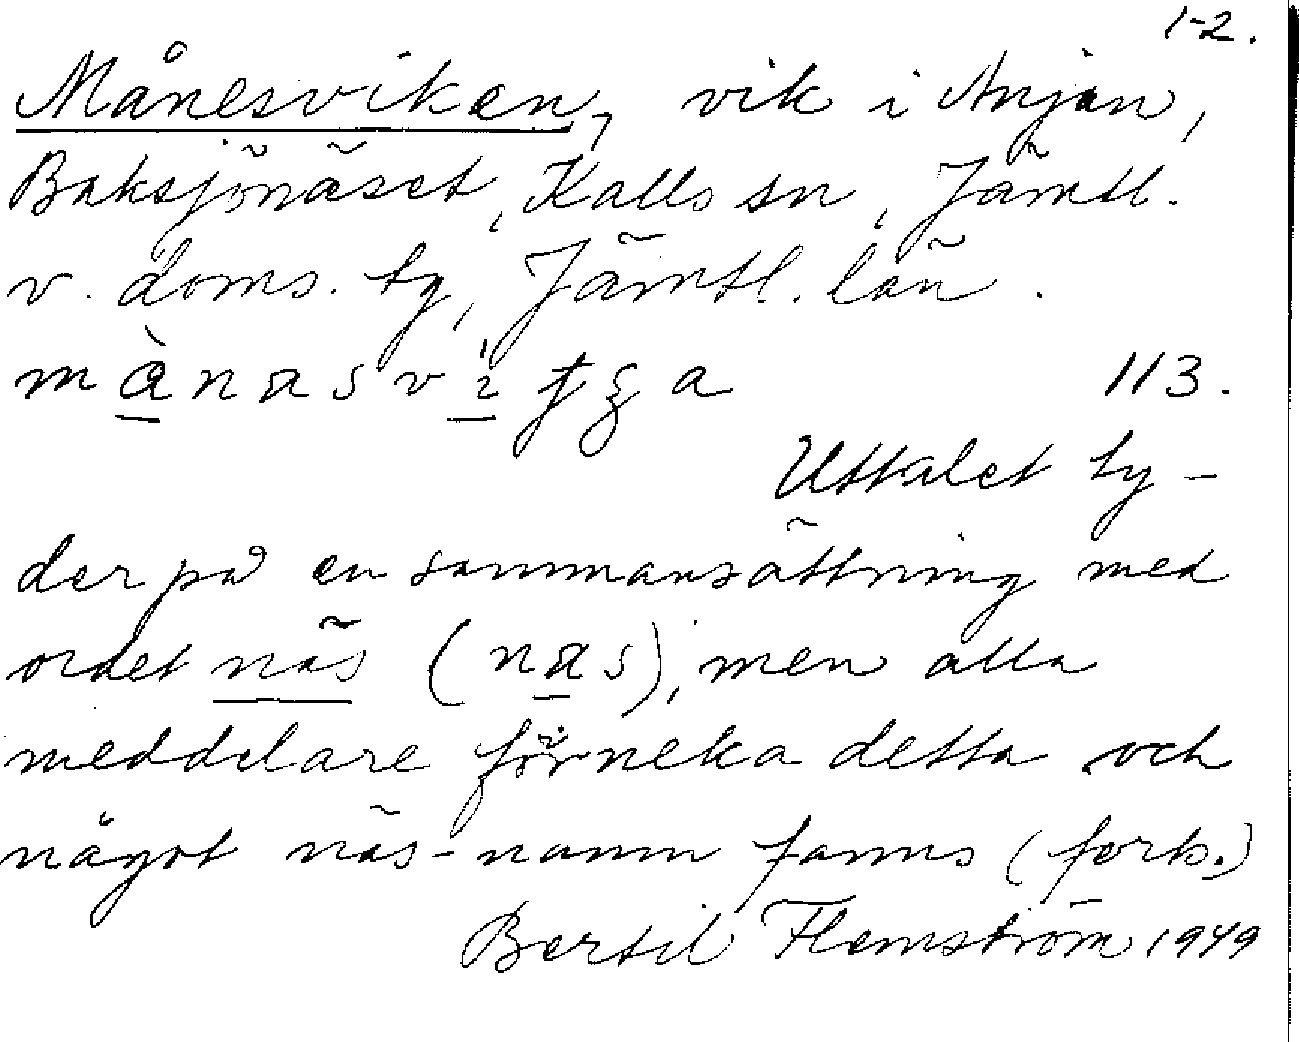 1-2.
Månesviken, vik i Anjan,
Baksjönäset, Kalls sn, Jämtl.
v. doms. tg, Jämtl. län.
113.
Uttalet ty-
der på en sammansättning med
ordet näs (nas), men alla
meddelare förneka detta och
något näs-namn fanns (forts.)
Bertil Flemström 1949